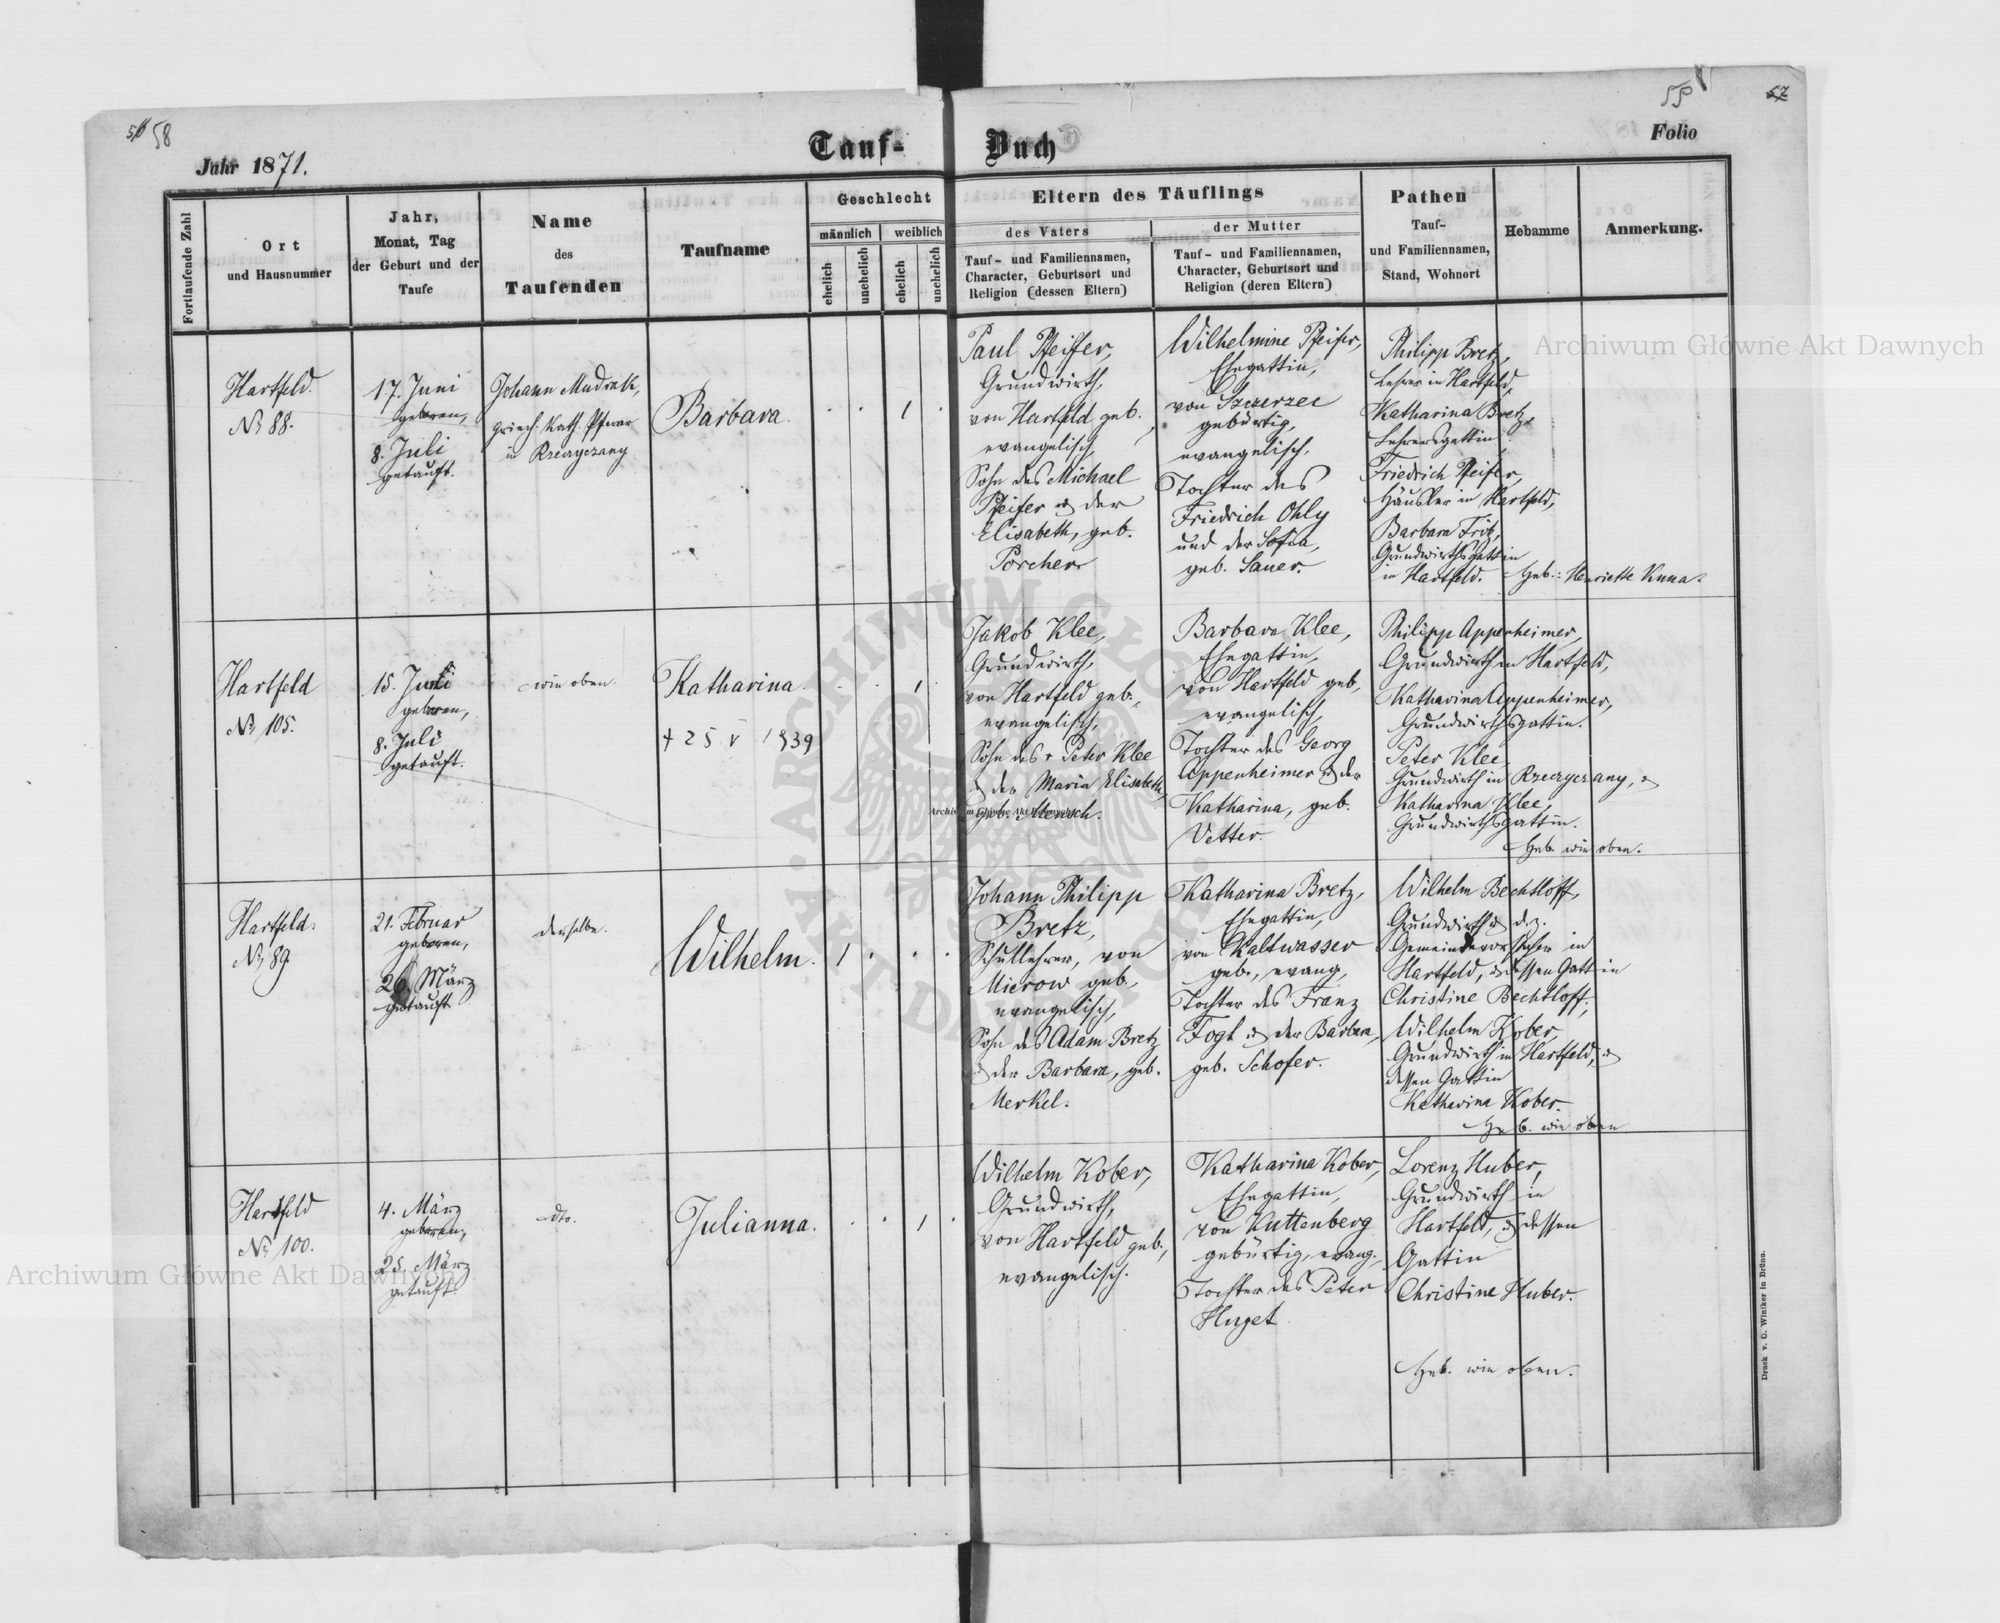 58
Jahr 1871.
Tauf-Buch
Folio
Fortlaufende Zahl
Ort
und Hausnummer
Jahr,
Monat, Tag
der Geburt und der
Taufe
Name
des
Taufenden
Taufname
Geschlecht
männlich
weiblich
ehelich
unehelich
ehelich
unehelich
Eltern des Täuflings
des Vaters
Tauf- und Familiennamen,
Character, Geburtsort und
Religion (dessen Eltern)
der Mutter
Tauf- und Familiennamen,
Character, Geburtsort und
Religion (deren Eltern)
Pathen
Tauf-
und Familiennamen,
Stand, Wohnort
Hebamme
Anmerkung.
Hartfeld.
No 88.
17. Juni
geboren,
8. Juli
getauft.
Johann Mudrak,
griech. kath. Pfarrer
in Rzeczyczany
Barbara.
1
Paul Pfeifer,
Grundwirth,
von Hartfeld geb.
evangelisch,
Sohn des Michael
Pfeifer & der
Elisabeth, geb.
Porcher
Wilhelmine Pfeifer,
Ehegattin,
von Szczerzec
gebürtig,
evangelisch,
Tochter des
Friedrich Ohly
und der Sofia,
geb. Sauer.
Philipp Bretz,
Lehrer in Hartfeld,
Katharina Bretz,
Lehrersgattin.
Friedrich Pfeifer,
Häusler in Hartfeld,
Barbara Fritz,
Grundwirthsgattin
in Hartfeld.
Heb.: Henriette Kuna.
Hartfeld
No 105.
15. Juni
geboren,
8. Juli
getauft.
wie oben.
Katharina.
+ 25 V 1939
1
Jakob Klee,
Grundwirth,
von Hartfeld geb.,
evangelisch,
Sohn des Peter Klee
& der Maria Elisabeth,
geb.
Barbara Klee,
Ehegattin,
von Hartfeld geb,
evangelisch,
Tochter des Georg
Appenheimer & der
Katharina, geb.
Vetter.
Philipp Appenheimer,
Grundwirth in Hartfeld,
Katharina Appenheimer,
Grundwirthsgattin.
Peter Klee,
Grundwirth in Rzeczyczany, &
Katharina Klee,
Grundwirthsgattin.
Heb. wie oben.
Hartfeld.
No 89
21. Februar
geboren,
26. März
getauft
derselbe.
Wilhelm.
1
Johann Philipp
Bretz,
Schullehrer, von
Mierow geb.,
evangelisch,
Sohn des Adam Bretz
& der Barbara, geb.
Merkel.
Katharina Bretz,
Ehegattin,
von Kaltwasser
geb., evang,
Tochter des Franz
Fogt & der Barbara,
geb. Schofer.
Wilhelm Bechtloff,
Grundwirth & d. z.
Gemeindevorsteher in
Hartfeld, & dessen Gattin
Christine Bechtloff,
Wilhelm Kober,
Grundwirth in Hartfeld, &
dessen Gattin
Katharina Kober.
Heb. wie oben
Hartfeld
No 100.
4. März
geboren,
25. März
getauft.
dto.
Julianna.
1
Wilhelm Kober,
Grundwirth,
von Hartfeld geb.,
evangelisch.
Katharina Kober,
Ehegattin,
von Kuttenberg
gebürtig, evang.
Tochter des Peter
Huget
Lorenz Huber,
Grundwirth in
Hartfeld, & dessen
Gattin
Christine Huber.
Heb. wie oben.
Druck v. C. Winiker in Brünn.
Archiwum Główne Akt Dawnych
Archiwum Główne Akt Dawnych